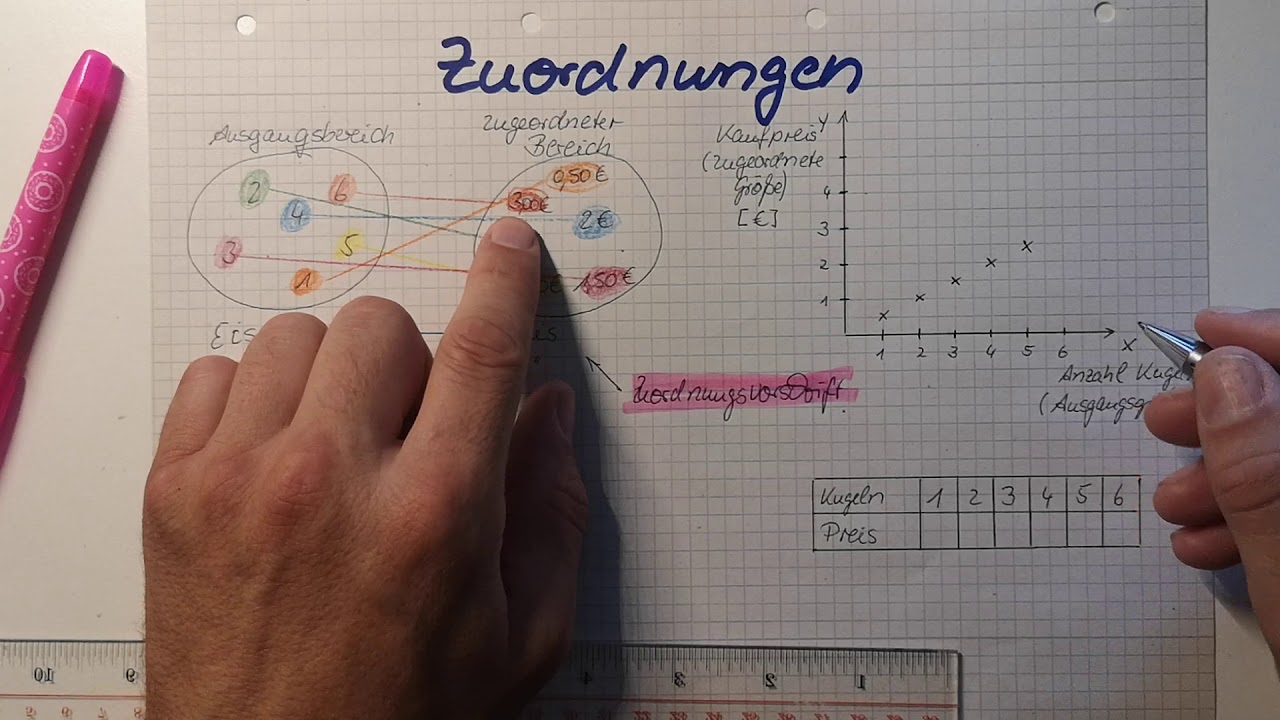 Zuordnungen
Ausgangsbereich
zugeordneter
Bereich
2
6
4
5
3
1
0,50 €
3,00€
2 €
1,50 €
Eis
Zuordnungsvorschrift
Kaufpreis y
(zugeordnete
Größe)
[€]
4
3
2
1
1 2 3 4 5 6 x
Anzahl Kugel
(Ausgangsg
Kugeln 1 2 3 4 5 6
Preis
10 9 4 3 2 1